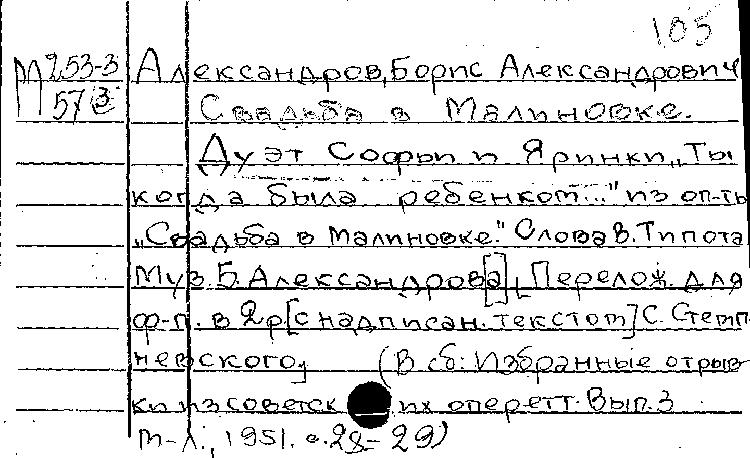 105
М 253-3 Александров, Борис Александрович
57 3 Свадьба в Малиновке.
Дуэт Софьи и Яринки „Ты
когда была ребенком..." из оп-ты
„Свадьба в Малиновке." Слова В. Типота
Муз. Б. Александров[а], Перелож. для
ф-п. в 2 р [с надписан. текстом] С. Стемп-
невского] (В сб: Избранные отрыв-
ки из советск их оперетт. Вып. 3
М-Л., 1951. с. 28-29)